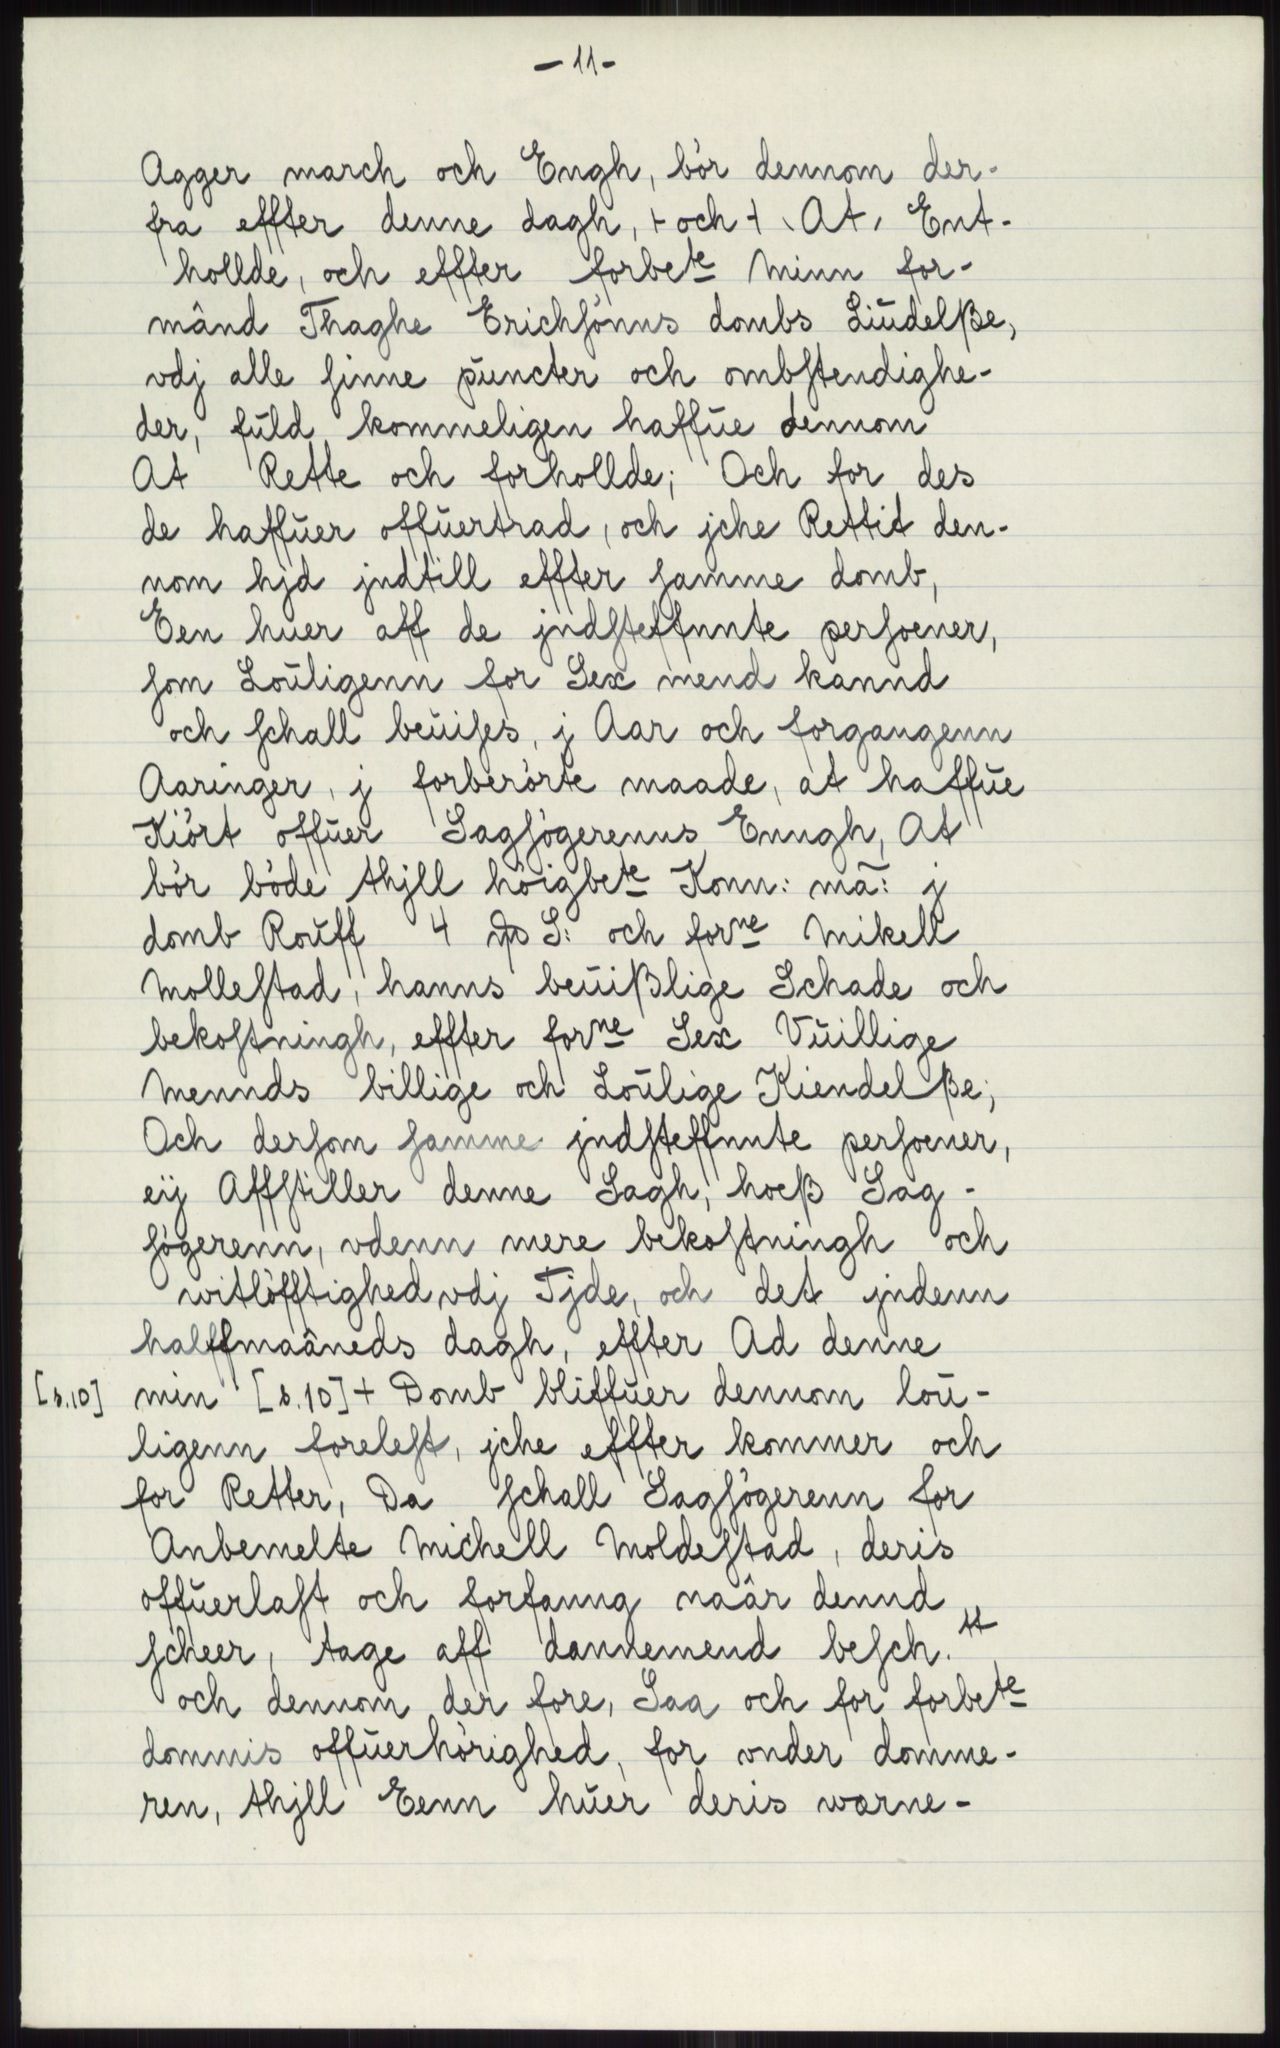 - 11 -
Agger march och Engh, bör dennom der-
fra effter denne dagh, + och + \ At, Ent-
hollde, och effter forbete Minn for-
månd Thaghe Erichſönns dombs Liudelße,
vdj alle ſinne pūncter och ombſtendighe-
der, fūld kommeligen haffūe dennom
At Rette och forhollde; Och for des
de haffūer offūertrad, och jche Rettit den-
nom hjd jndtill effter ſamme domb,
Een huer aff de jndſteffnnte perſoener,
ſom Loūligenn for Sex mend kannd
och ſchall beūiſes, j Aar och forgangenn
Aaringer, j forberörte maade, at haffūe
Kiört offūer Sagſögerenns Enngh, At
bör böde thjll höigbete Konn: mā: j
domb Roūff 4 S: och forne Mikell
Molleſtad, hanns beūißlige Schade och
bekoſtningh, effter forne Sex Vūillige
Mennds billige och Loūlige Kiendelße;
Och derſom ſamme jndſteffnnte perſoener,
eij Affſtiller denne Sagh, hoeß Sag-
ſögerenn, vdenn mere bekoſtningh och
witlöfftighed vdj Tjde, och det jndenn
halffmaåneds dagh, effter Ad denne
[s.10] min [s.10] + Domb bliffūer dennom loū-
ligenn foreleſt, jche effter kommer och
for Retter, Da ſchall Sagſögerenn for
Anbemelte Michell Moldeſtad, deris
offūerlaſt och forfanng naår dennd
ſcheer, tage aff dannemend beſch. ++
och dennom der fore, Saa och for forbete
dommis offūerhörighed, for vnder domme-
ren, thjll Eenn hūer deris worne-